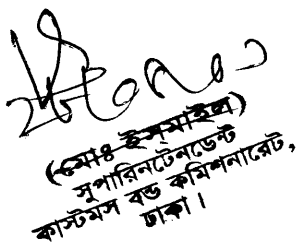 (মোঃ ইসমাইল)
সুপারিনটেনডেন্ট
কাস্টমস বন্ড কমিশনারেট,
ঢাকা।